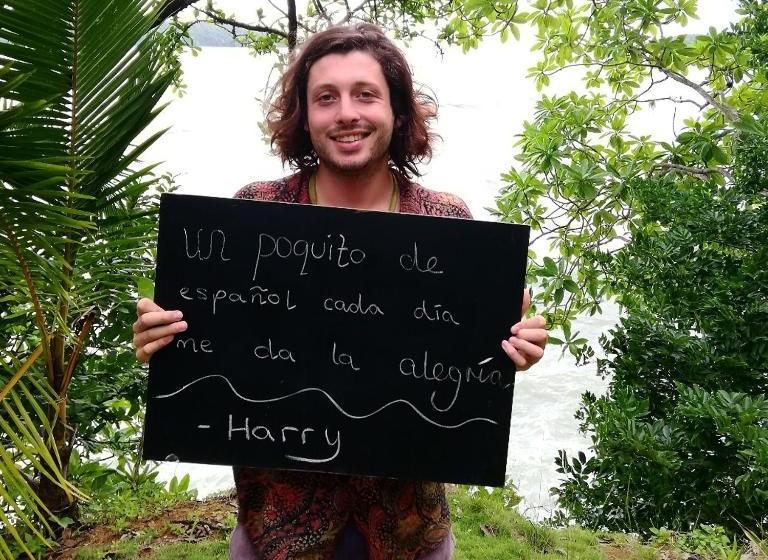 Un poquito de
español cada día
me da la alegría
- Harry